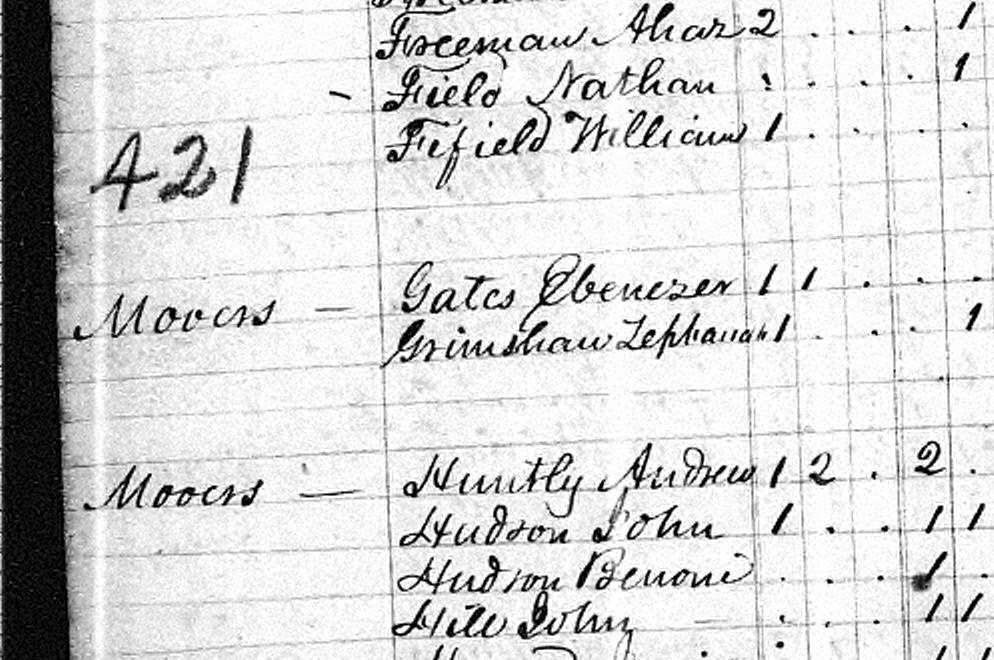 Freeman Ahaz 2 . . . . 1
- Field Nathan : . . . . 1
Fifield William 1 . . . .
421
Mooers — Gates Ebenezer 1 1 . . .
Grimshaw Zephaniah 1 . . . 1
Mooers — Huntly Andrew 1 2 . 2 .
Hudson John 1 . . 1 1
Hudson Benoni . . . 1 .
Hill John . . . 1 1